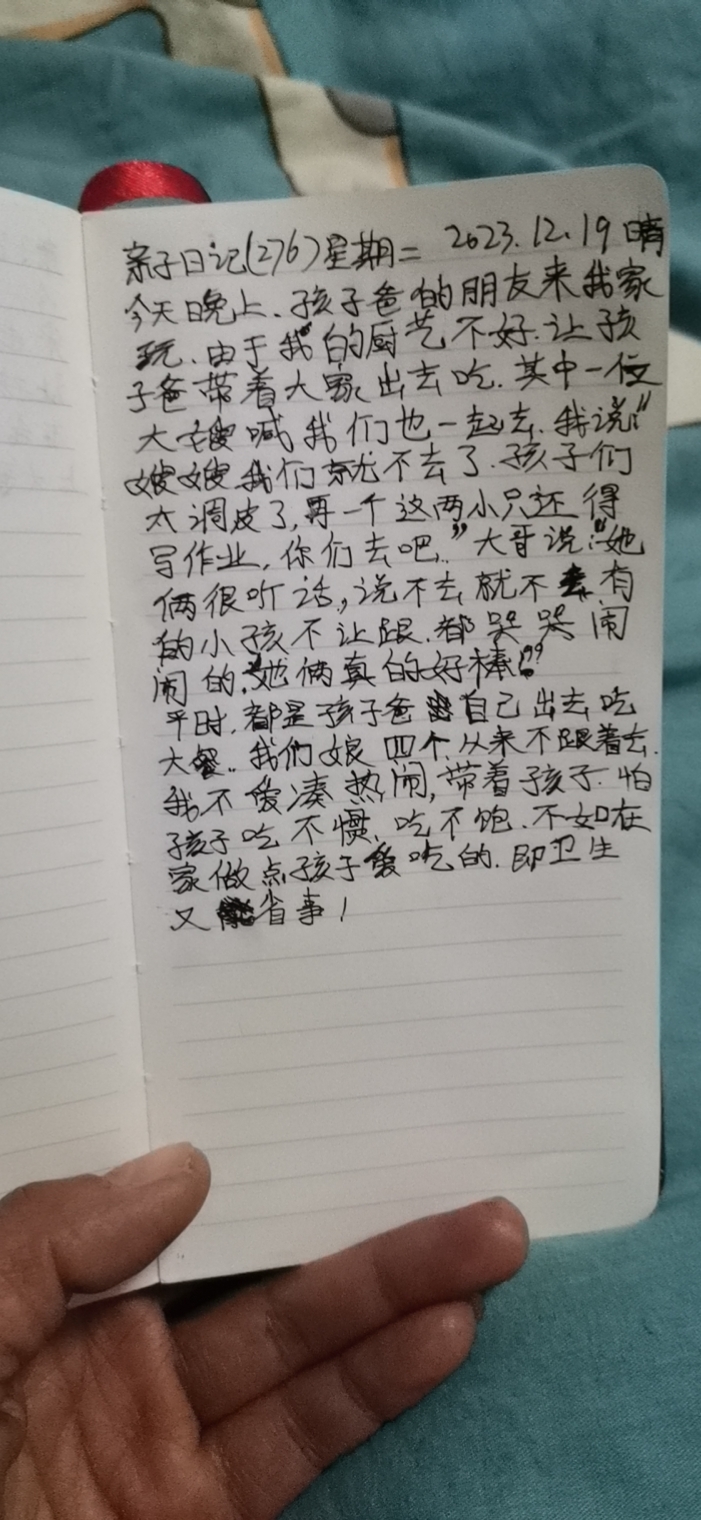 亲子日记(276)星期二 2023.12.19 晴
今天晚上、孩子爸的朋友来我家
玩、由于我"的厨艺不好.让孩
子爸带着大家出去吃.其中一位
大嫂喊我们也一起去.我说:"
嫂嫂我们就不去了.孩子们
太调皮了,再一个这两小只还得
写作业,你们去吧.."大哥说:"她
俩很听话,说不去就不去,有
的小孩不让跟.都哭哭闹
闹的."她俩真的好棒!"
平时.都是孩子爸自己出去吃
大餐..我们娘四个.从来不跟着去.
我不爱凑热闹,带着孩子.怕
孩子吃不惯、吃不饱.不如在
家做点孩子爱吃的.即卫生
又省事!